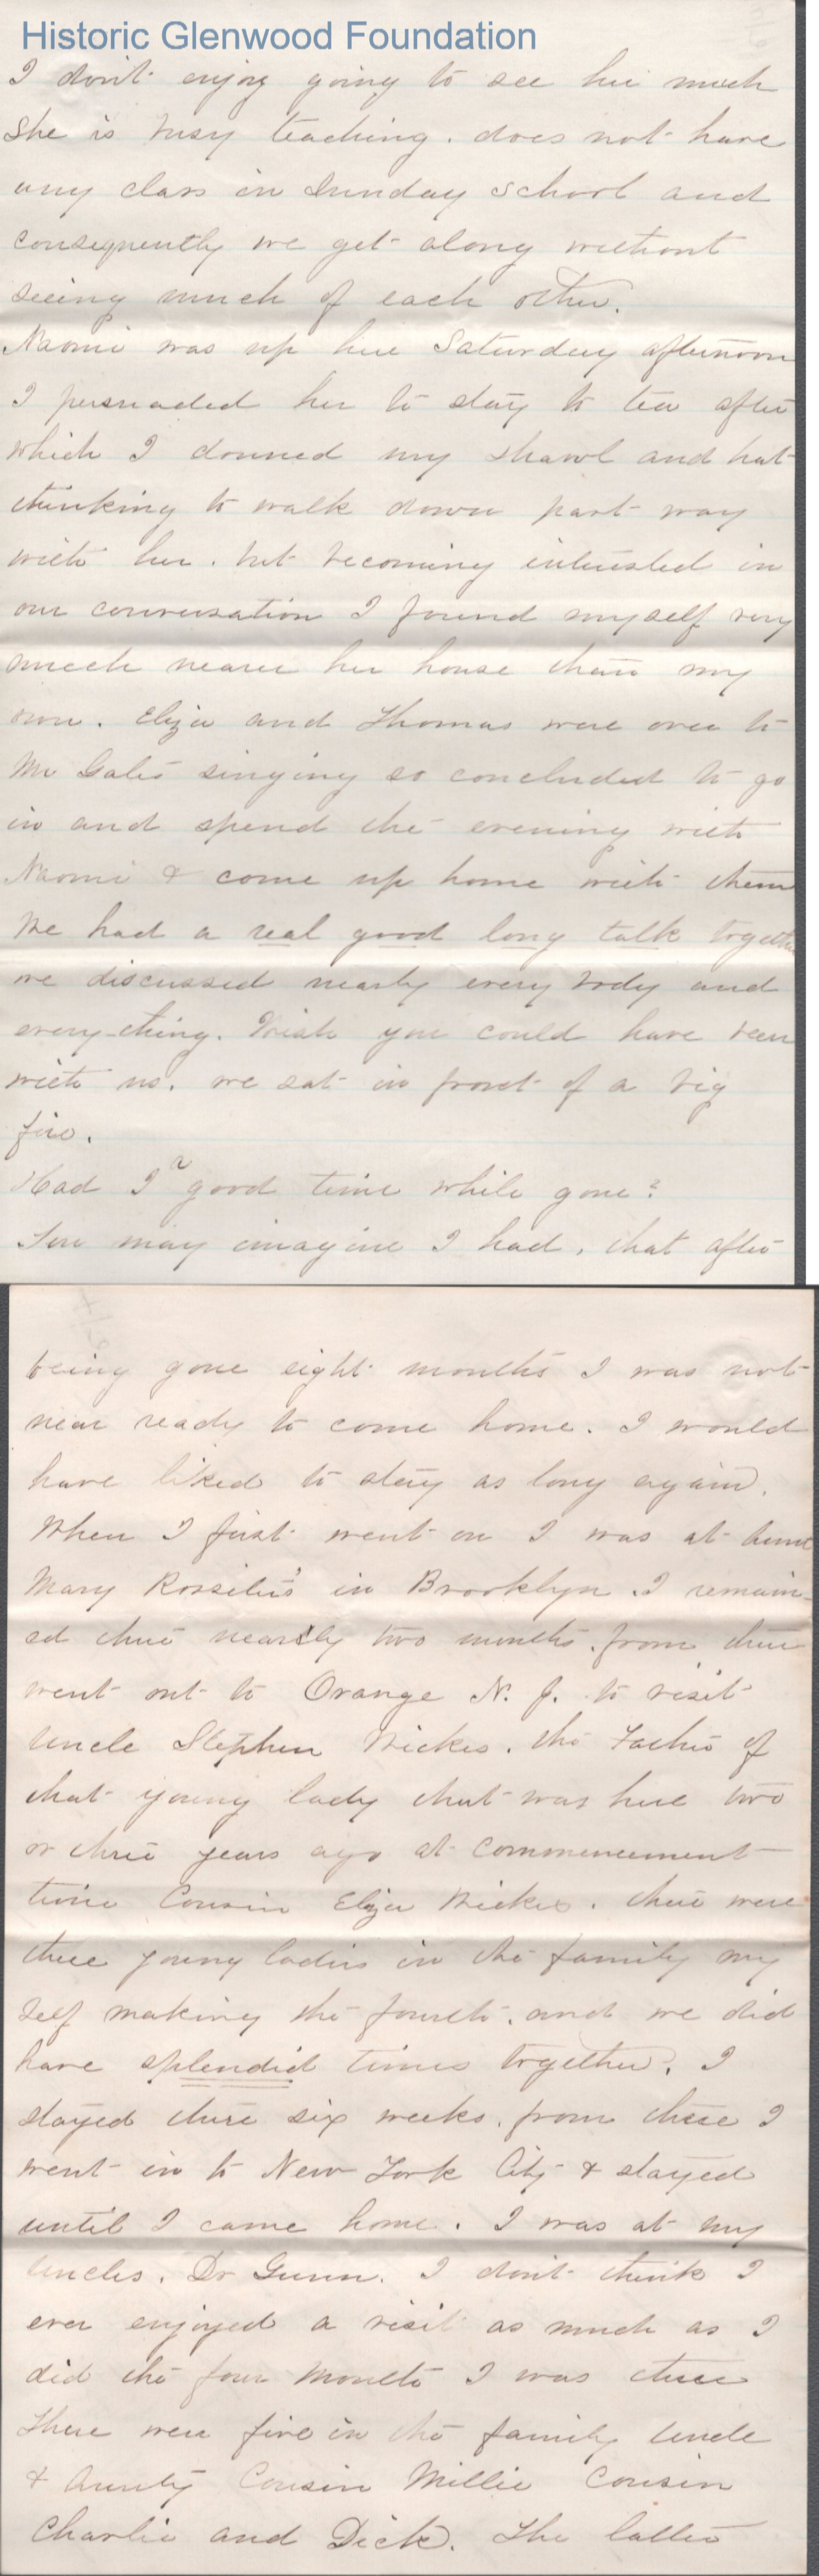 Historic Glenwood Foundation
I don't enjoy going to see her much
She is busy teaching. does not have
any class in Sunday School and
consequently we get along without
seeing much of each other.
Naomi was up here Saturday afternoon
I persuaded her to stay to tea after
which I donned my shawl and hat
thinking to walk down part way
with her. but becoming interested in
our conversation I found myself very
much nearer her house than my
own. Eliza and Thomas were over to
Mr Gales singing so concluded to go
in and spend the evening with
Naomi & come up home with them
We had a real good long talk together
we discussed nearly every body and
every-thing. Wish you could have been
with us. we sat in front of a big
fire.
Had I a good time while gone?
You may imagine I had, that after
being gone eight months I was not
near ready to come home. I would
have liked to stay as long again.
When I first went on I was at Aunt
Mary in Brooklyn. I remain-
ed there nearly two months. from there
went out to Orange N. J. to visit
Uncle Stephen Wickes. the Father of
that young lady that was here two
or three years ago at commencement
time Cousin Eliza Wickes. there were
three young ladies in the family my
self making the fourth. and we did
have splendid times together. I
stayed there six weeks. from there I
went in to New York City & stayed
until I came home. I was at my
Uncles. Dr Gunn. I don't think I
ever enjoyed a visit as much as I
did the four months I was there
There were five in the family Uncle
& Aunty Cousin Millie Cousin
Charlie and Dick. The latter